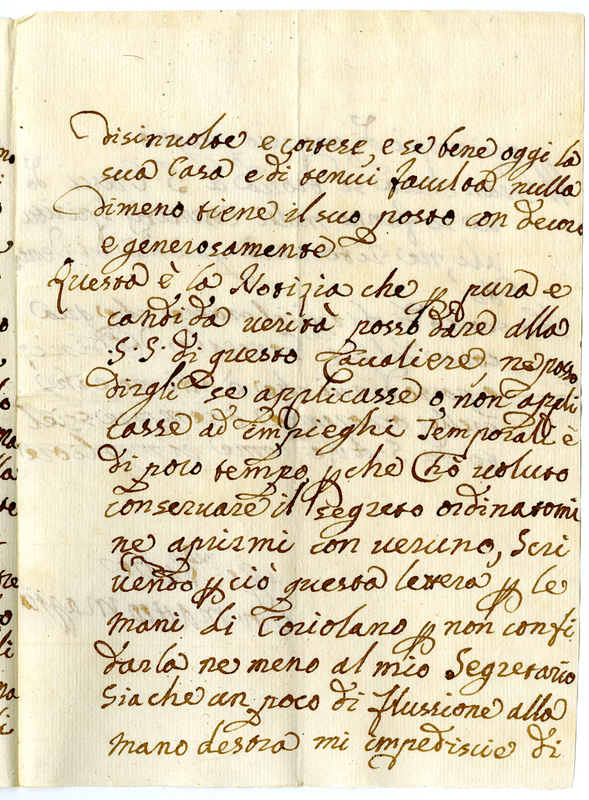 disinuolte e cortese, e se bene oggi la
sua Casa e di tenui facultà nulla
dimeno tiene il suo posto con decoro
e generosamente
Questa è la Notizia che p pura e
candida uerità posso dare alla
S. S. di questo Caualiere, ne posso
dirgli se applicasse o non appli
casse ad impieghi Temporali è
di poco tempo, p che l'hò uoluto
conseruare il segreto ordinatomi
ne aprirmi con ueruno, Scri
uendo p ciò questa lettera p le
mani di Coriolano p non confi
darla ne meno al mio Segretario
Sia che un poco di flussione alla
mano destra mi impedisce di